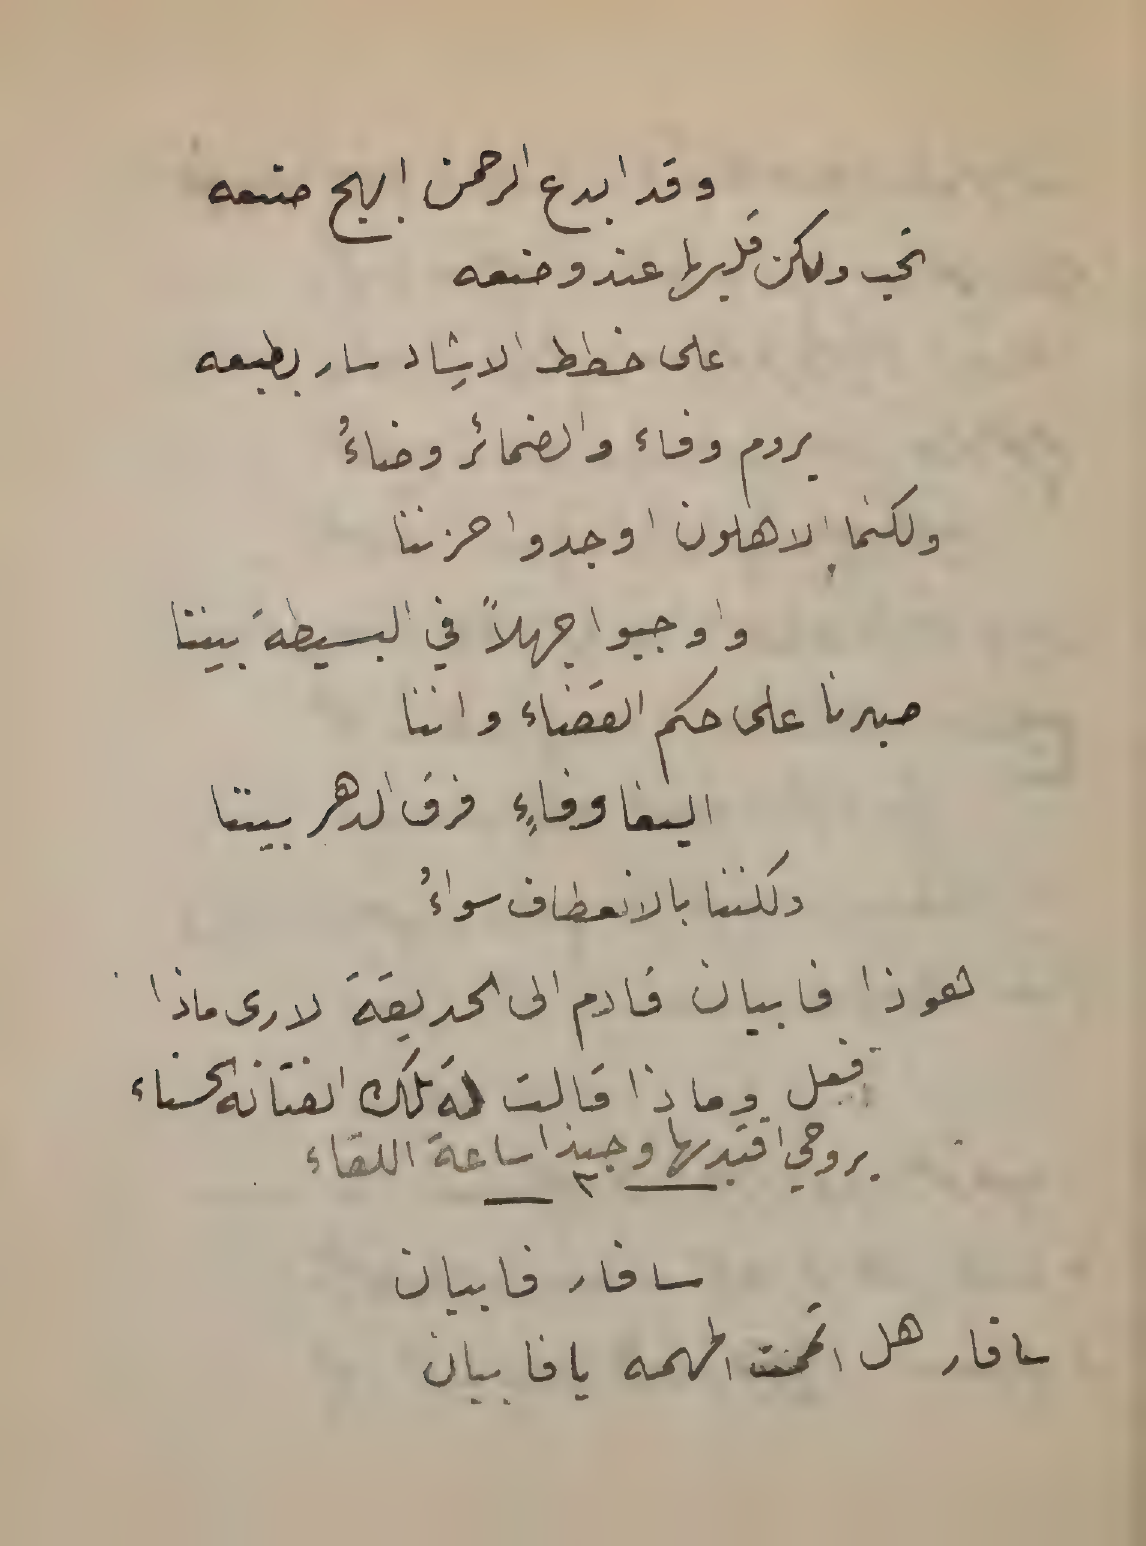 وقد ابدع الرحمن ابهج صنعه
تحب ولكن قلبها عند وضعه
على خطط الارشاد سار بطبعه
يروم وفاء والضمائر وضاءُ
ولكنما الاهلون اوجدوا حزننا
واوجبوا جهلاً في البسيطة بيننا
صبرنا على حكم القضاء واننا
اليفا وفاءٍ فرق الدهر بيننا
ولكننا بالانعطاف سواءُ
هوذا فابيان قادم الى الحديقة لارى ماذا
فعل وماذا قالت له تلك الفتانة الحسناء
بروحي افتديها وحبذا ساعة اللقاء
٣
سافار فابيان
سافار هل اتممت المهمه يا فابيان